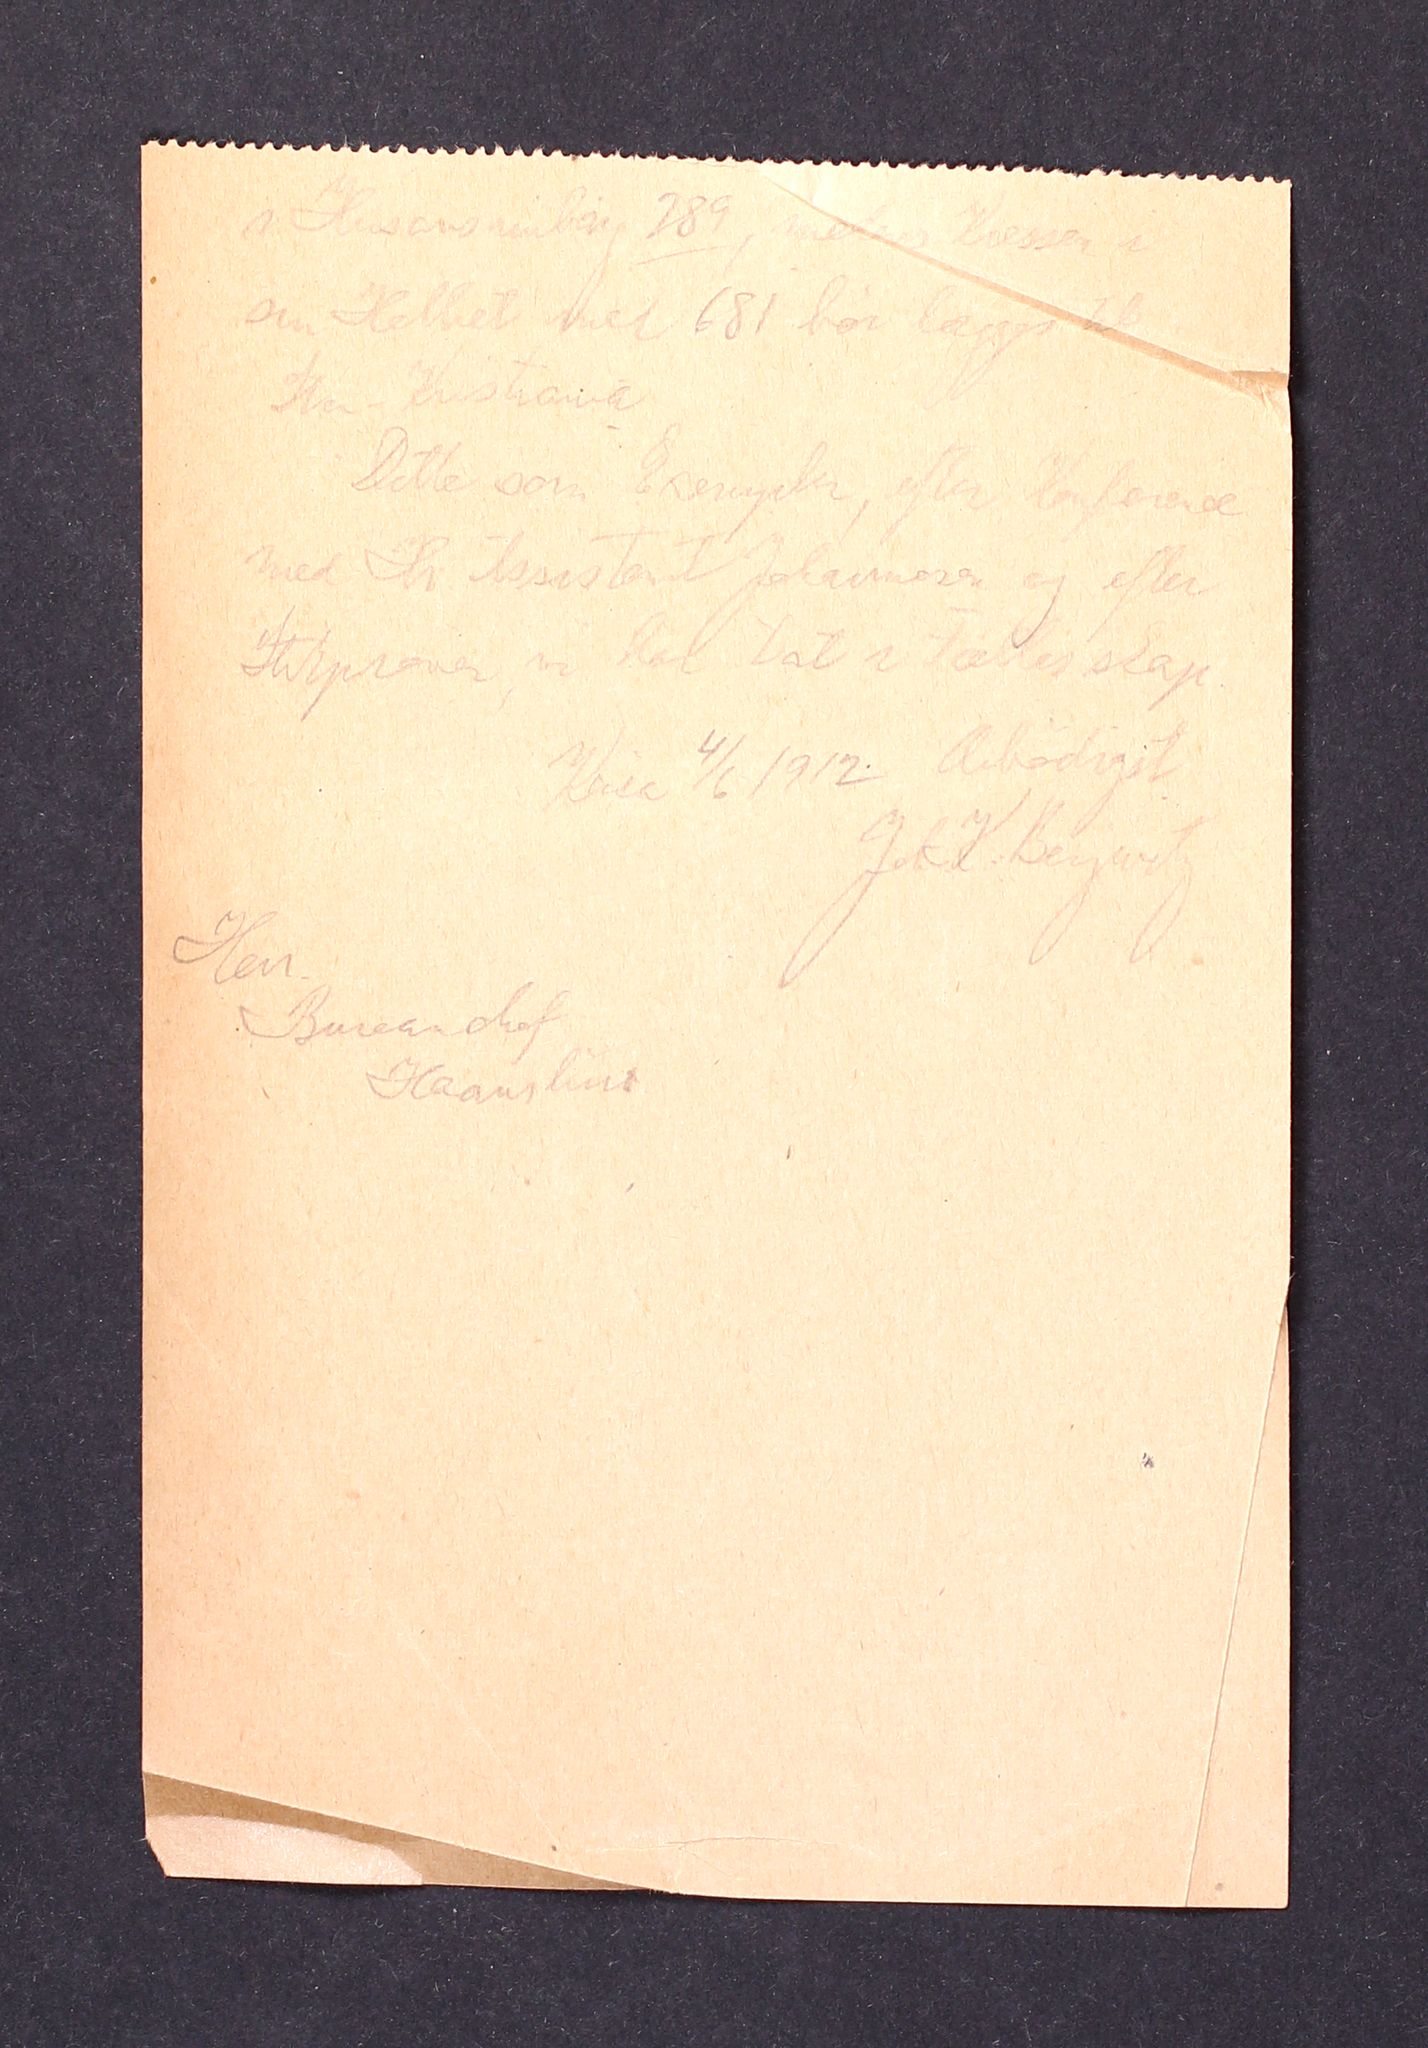 i Husansninbøy 289, medens Kressen i
sin Helhet med 681 bør lægges til
Kra - Kristiania
Dette som Exempler, efter Konferance
med Hr Assistent Johannesen og efter
Stikprøver, vi har tat i Fællesskap.
Kria 4/6 1912. Ærbødigst
Joh. K. Bergwitz
Herr
Bureauchef
Haanshus